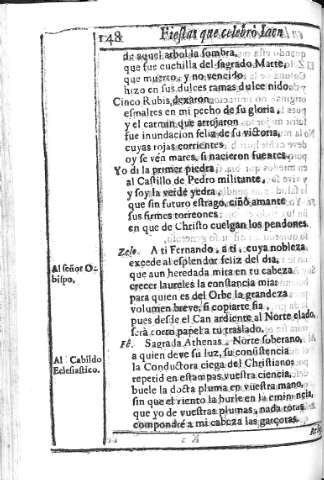 148 Fiestas que celebrò Iaen
de aquel arbol la sombra,
que fue cuchilla del sagrado Marte,
que muerto, y no vencido
hizo en sus dulces ramas dulce nido.
Cinco Rubis dexaron
esmaltes en mi pecho de su gloria,
y el carmin que arrojaron
fue inundacion feliz de su victoria,
cuyas rojas corrientes
oy se vèn mares, si nacieron fuentes.
Yo di la primer piedra
al Castillo de Pedro militante,
y soy la verde yedra,
que sin futuro estrago, ciñò amante
sus firmes torreones
en que de Christo cuelgan los pendones.
Zelo. A ti Fernando, a ti, cuya nobleza
excede al esplendor feliz del dia,
que aun heredada mira en tu cabeza
Al señor Oz-
bispo,
crecer laureles la constancia mia:
para quien es del Orbe la grandeza
volumen breve, si copiarte fia,
pues desde el Can ardiente al Norte elado,
serà corto papel a tu traslado.
Fè. Sagrada Athenas, Norte soberano,
Al Cabildo
Eclesiastico.
a quien deve su luz, su consistencia
la Conductora ciega del Christiano:
reperid en estampas vuestra ciencia,
buele la docta pluma en vuestra mano,
sin que el viento la burle en la eminencia,
que yo de vuestras plumas, nada rotas
compondrè a mi cabeza las garçotas.